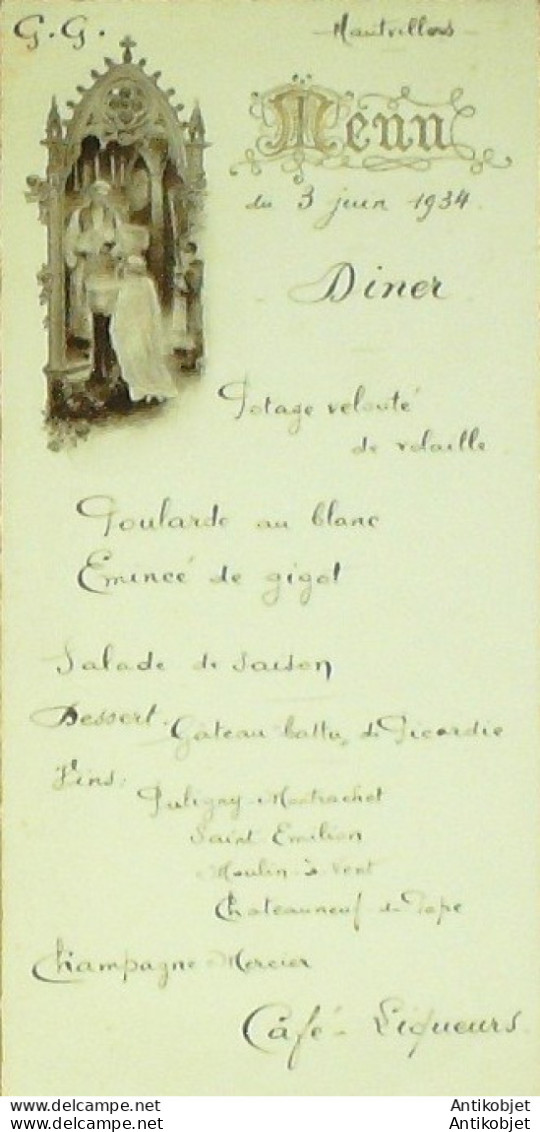 G.G.
Hautvillers
Menu
du 3 juin 1934
Diner
Potage velouté
de volaille
Poularde au blanc
Emincé de gigot
Salade de Saison
Dessert. Gâteau battu de Picardie
Vins: Puligny-Montrachet
Saint Emilion
Moulin à vent
Chateauneuf du Pape
Champagne Mercier
Café - Liqueurs
Antikobjet Antikobjet
Antikobjet Antikobjet